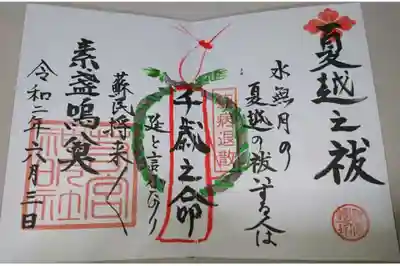 夏越之祓
水無月の
夏越の祓する人は
疫病退散
千歳之命
延と言ふなり
蘇民将来〱
素盞嗚尊
令和二年六月三日